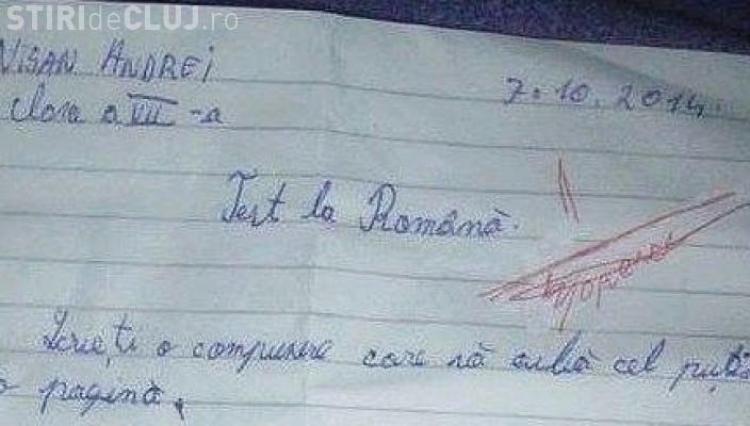 STIRIdeCLUJ.ro
VISAN ANDREI
7.10.2014.
Clasa a VII-a
Test la Română.
Scrieți o compunere care să aibă cel puțin
o pagină.